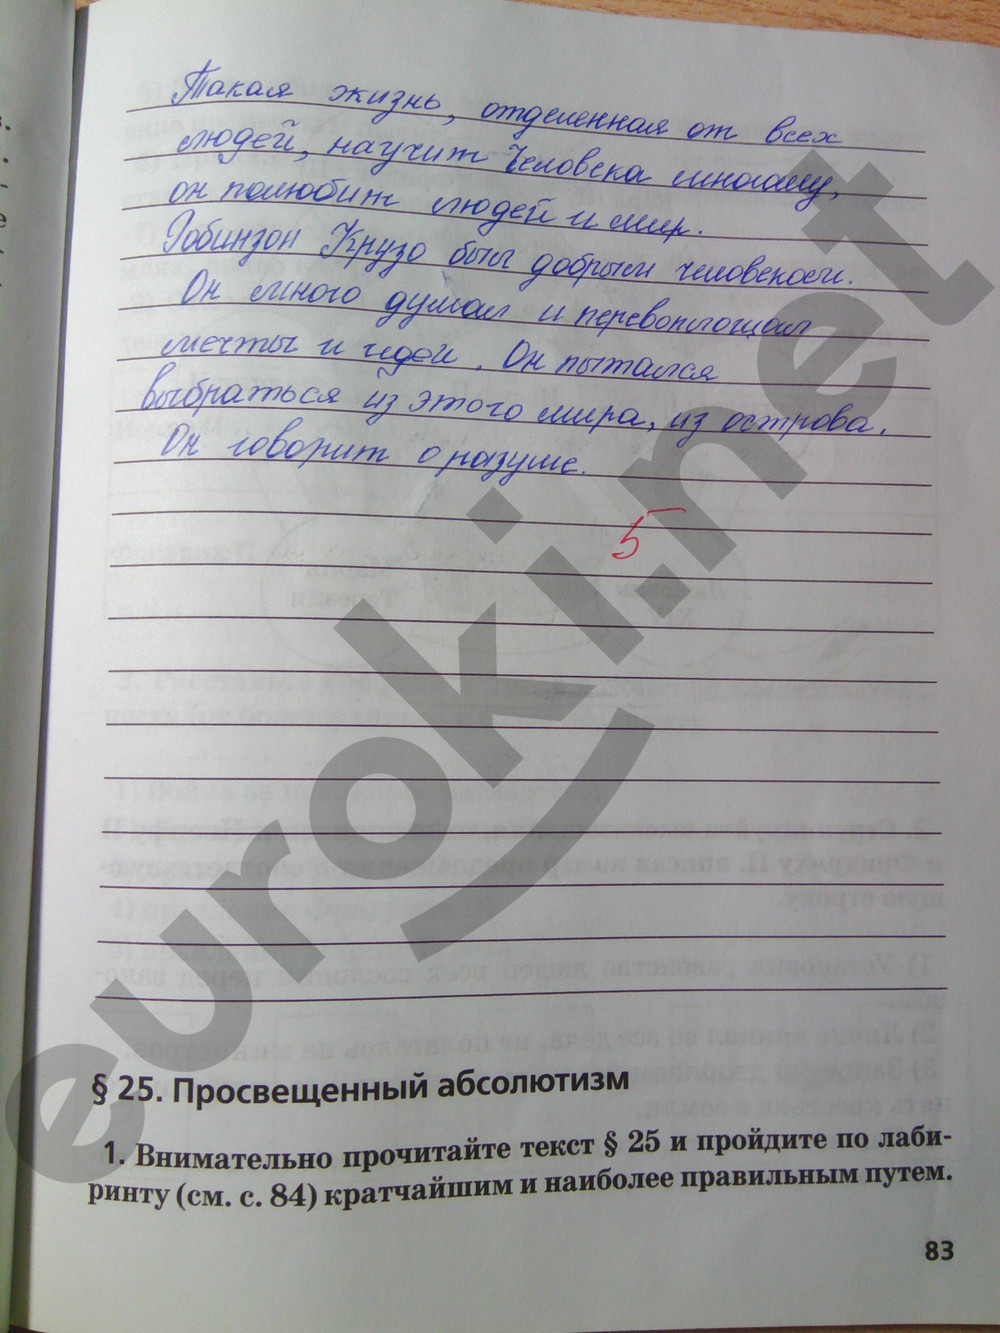 Такая жизнь, отделенная от всех
людей, научит человека многому,
он полюбит людей и мир.
Робинзон Крузо был добрым человеком.
Он много думал и перевоплощал
мечты и идеи. Он пытался
выбраться из этого мира, из острова.
Он говорит о разуме.
5
euroki.net
§ 25. Просвещенный абсолютизм
1. Внимательно прочитайте текст § 25 и пройдите по лаби-
ринту (см. с. 84) кратчайшим и наиболее правильным путем.
83